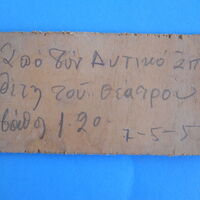 Ἀπό τόν Δυτικό Σπ
θέτη τοῦ θεάτρου
βάθος 1.20
7-5-5